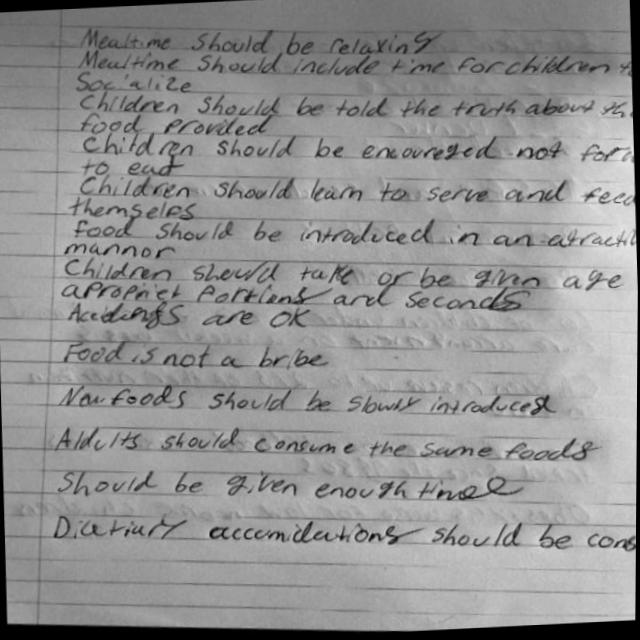 Mealtime should be relaxing
Mealtime should include time for children
Socialize
Children should be told the truth about
food provided
Children should be encoureged not
to eat
Children should learn to serve and
themselfs
food should be introduced in an
mannor
Children should take or be given age
apropriet Portions and Seconds
are OK
Food is not a bribe
New foods should be slowly introduced
Aldults should consume the same foods
Should be given enough time
accomidations should be